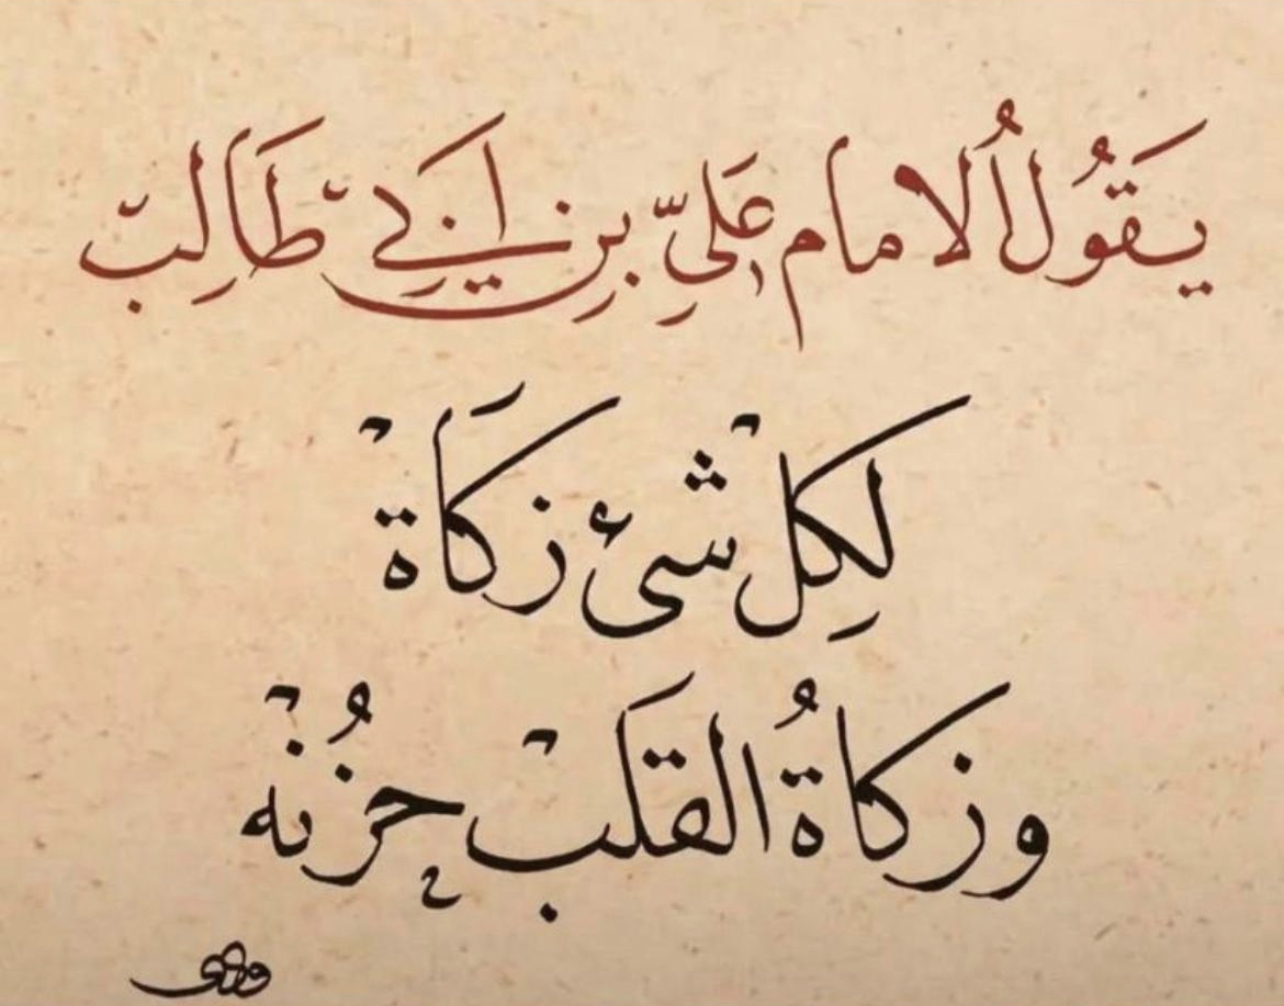 يَقُولُ الامام عَليِّ بنِ ابَي طَالِبْ
لكِلْ شئ زكَاةْ
وزكاةُ القَلبْ حزُنْه
وهمى